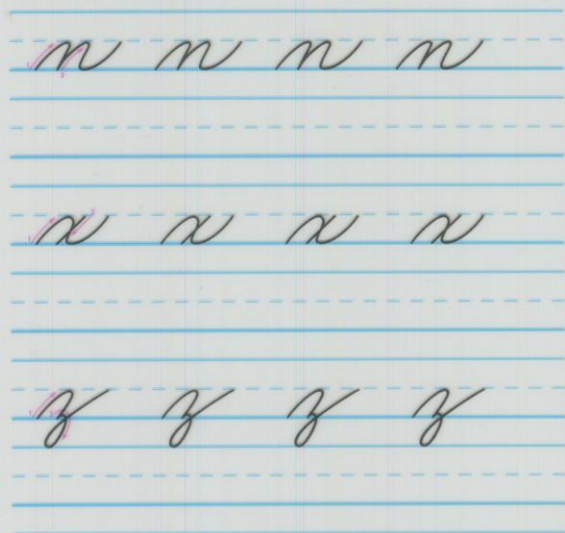 n n n n
x x x x
z z z z